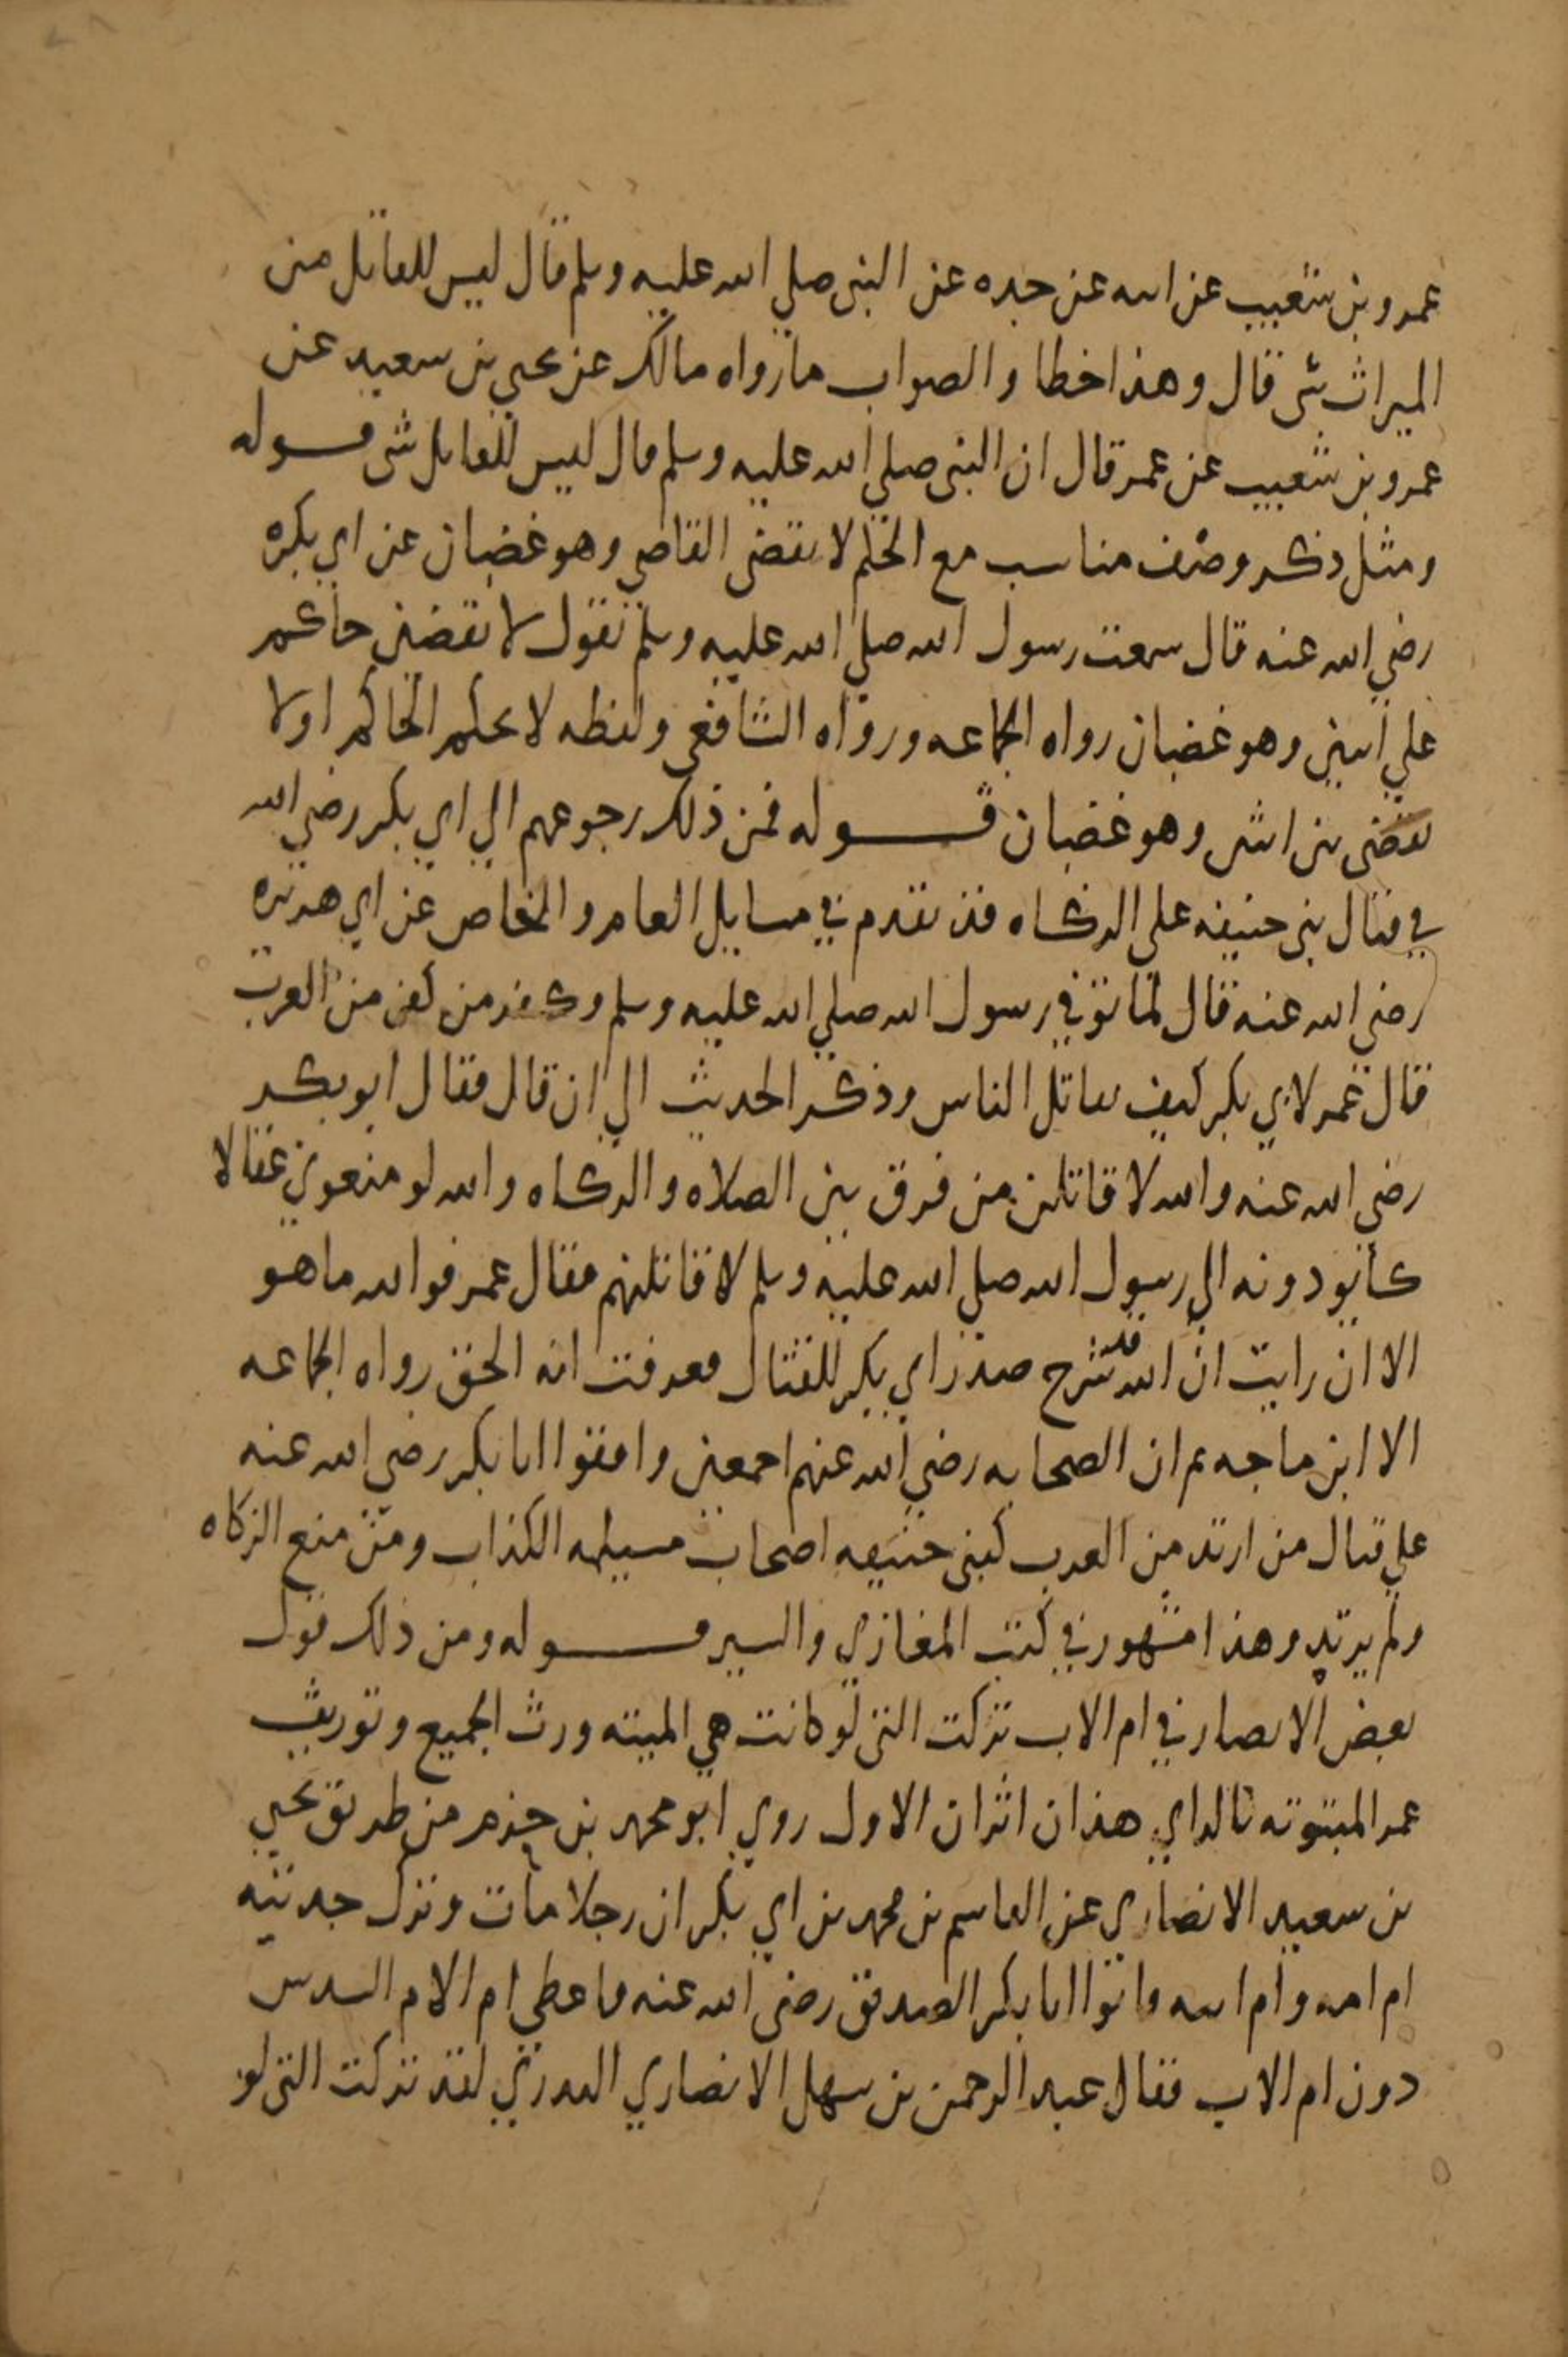 عمرو بن شعيب عن ابيه عن جده عن النبي صلي الله عليه وسلم قال ليس للقاتل من
الميراث شي قال وهذا خطا والصواب ما رواه مالك عن يحيي بن سعيد عن
عمرو بن شعيب عن عمر قال ان النبي صلي الله عليه وسلم قال ليس للقاتل شي قوله
ومثل ذكر وصف مناسب مع الحكم لا يقضي القاضي وهو غضبان عن ابي بكره
رضي الله عنه قال سمعت رسول الله صلي الله عليه وسلم يقول لا يقضين حاكم
علي اثنين وهو غضبان رواه الجماعه ورواه الشافعي ولفظه لا يحكم الحاكم او لا
يقضي بين اثنين وهو غضبان قوله فمن ذلك رجوعهم الي ابي بكر رضي الله
في قتال بني حنيفه علي الزكاه قد تقدم في مسايل العام والخاص عن ابي هريره
رضي الله عنه قال لما توفي رسول الله صلي الله عليه وسلم وكفر من كفر من العرب
قال عمر لابي بكر كيف يقاتل الناس وذكر الحديث الي ان قال فقال ابو بكر
رضي الله عنه والله لاقاتلن من فرق بين الصلاه والزكاه والله لو منعوني عقالا
كانو يودونه الي رسول الله صلي الله عليه وسلم لاقاتلنهم فقال عمر فوالله ما هو
الا ان رايت ان الله قد شرح صدر ابي بكر للقتال فعرفت انه الحق رواه الجماعه
الا ابن ماجه ثم ان الصحابه رضي الله عنهم اجمعين وافقوا ابا بكر رضي الله عنه
علي قتال من ارتد من العرب كبني حنيفه اصحاب مسيلمه الكذاب ومن منع الزكاه
ولم يرتد وهذا مشهور في كتب المغازي والسير قوله ومن ذلك قول
بعض الانصار في ام الاب تركت التي لو كانت هي الميته ورث الجميع وتوريث
عمر المبتوته بالراي هذان اثران الاول روي ابو محمد بن حزم من طريق يحيي
بن سعيد الانصاري عن القاسم بن محمد بن ابي بكر ان رجلا مات وترك جدتيه
ام امه وام ابيه فاتوا ابا بكر الصديق رضي الله عنه فاعطي ام الام السدس
دون ام الاب فقال عبد الرحمن بن سهل الانصاري البدري لقد تركت التي لو